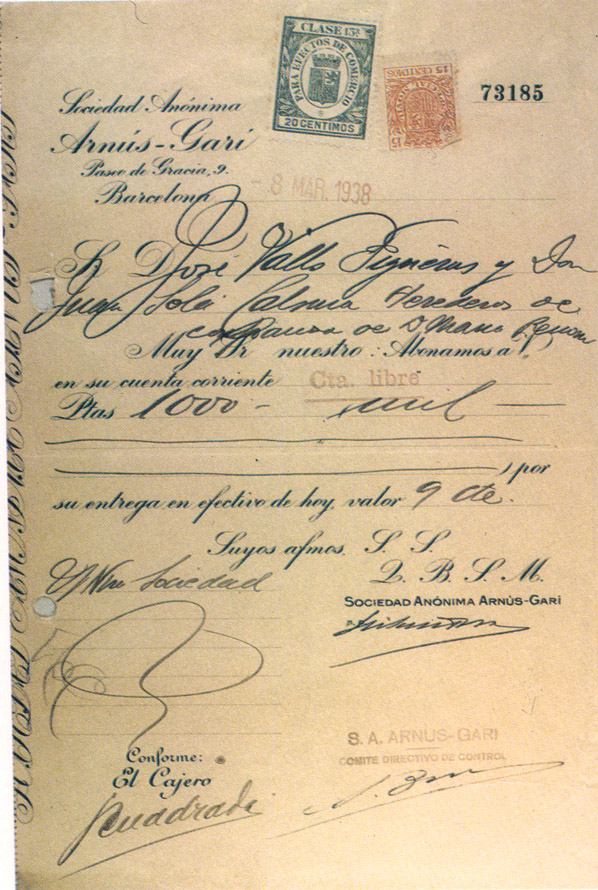 CLASE 13ª
PARA EFECTOS DE COMERCIO
20 CENTIMOS
15 CENTIMOS
15
73185
Sociedad Anónima
Arnús-Garí
Paseo de Gracia, 9.
Barcelona
- 8 MAR. 1938
Sr. D. José Valls Figueras y Don
Juan Solá Herederos de
confianza de D.
Muy Sr nuestro: Abonamos a V.
en su cuenta corriente Cta. libre
Ptas 1000 - mil -
, por
su entrega en efectivo de hoy, valor 9 cte.
Suyos afmos. S. S.
Q. B. S. M.
Sociedad
SOCIEDAD ANÓNIMA ARNÚS-GARÍ
S. A. ARNUS-GARI
COMITE DIRECTIVO DE CONTROL
Conforme:
El Cajero
Cuadrada